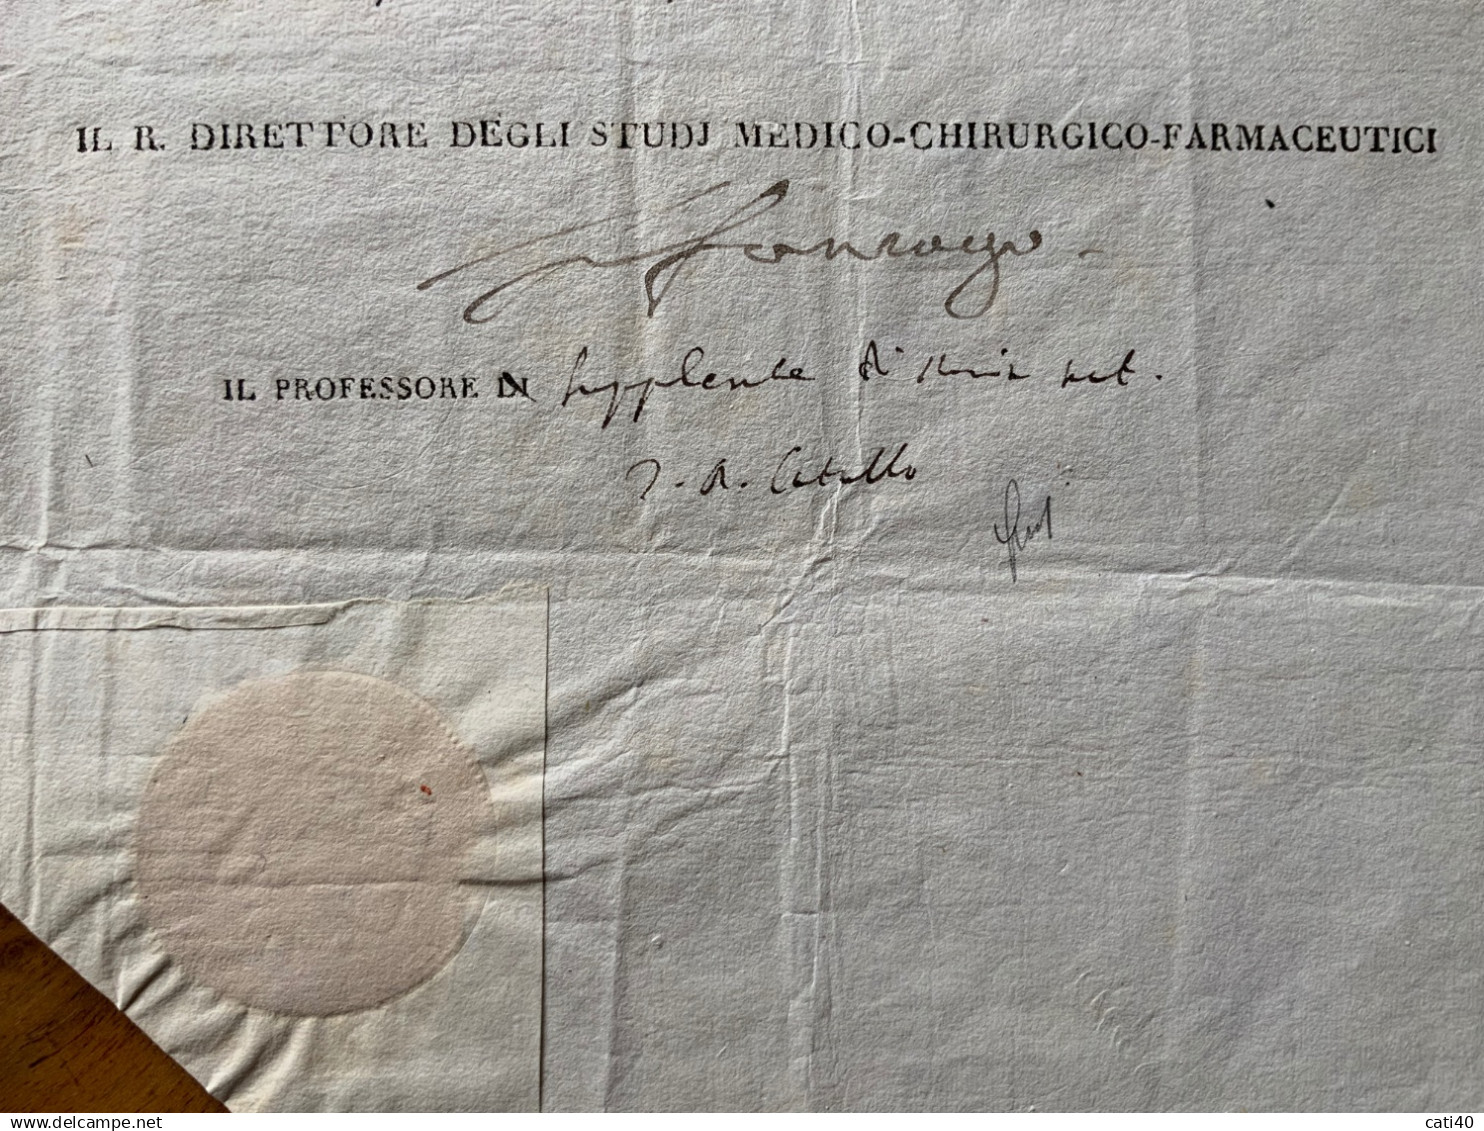 IL R. DIRETTORE DEGLI STUDJ MEDICO-CHIRURGICO-FARMACEUTICI
IL PROFESSORE IN supplente di Stor. nat.
T. A. Catullo
www.delcampe.net
cati40